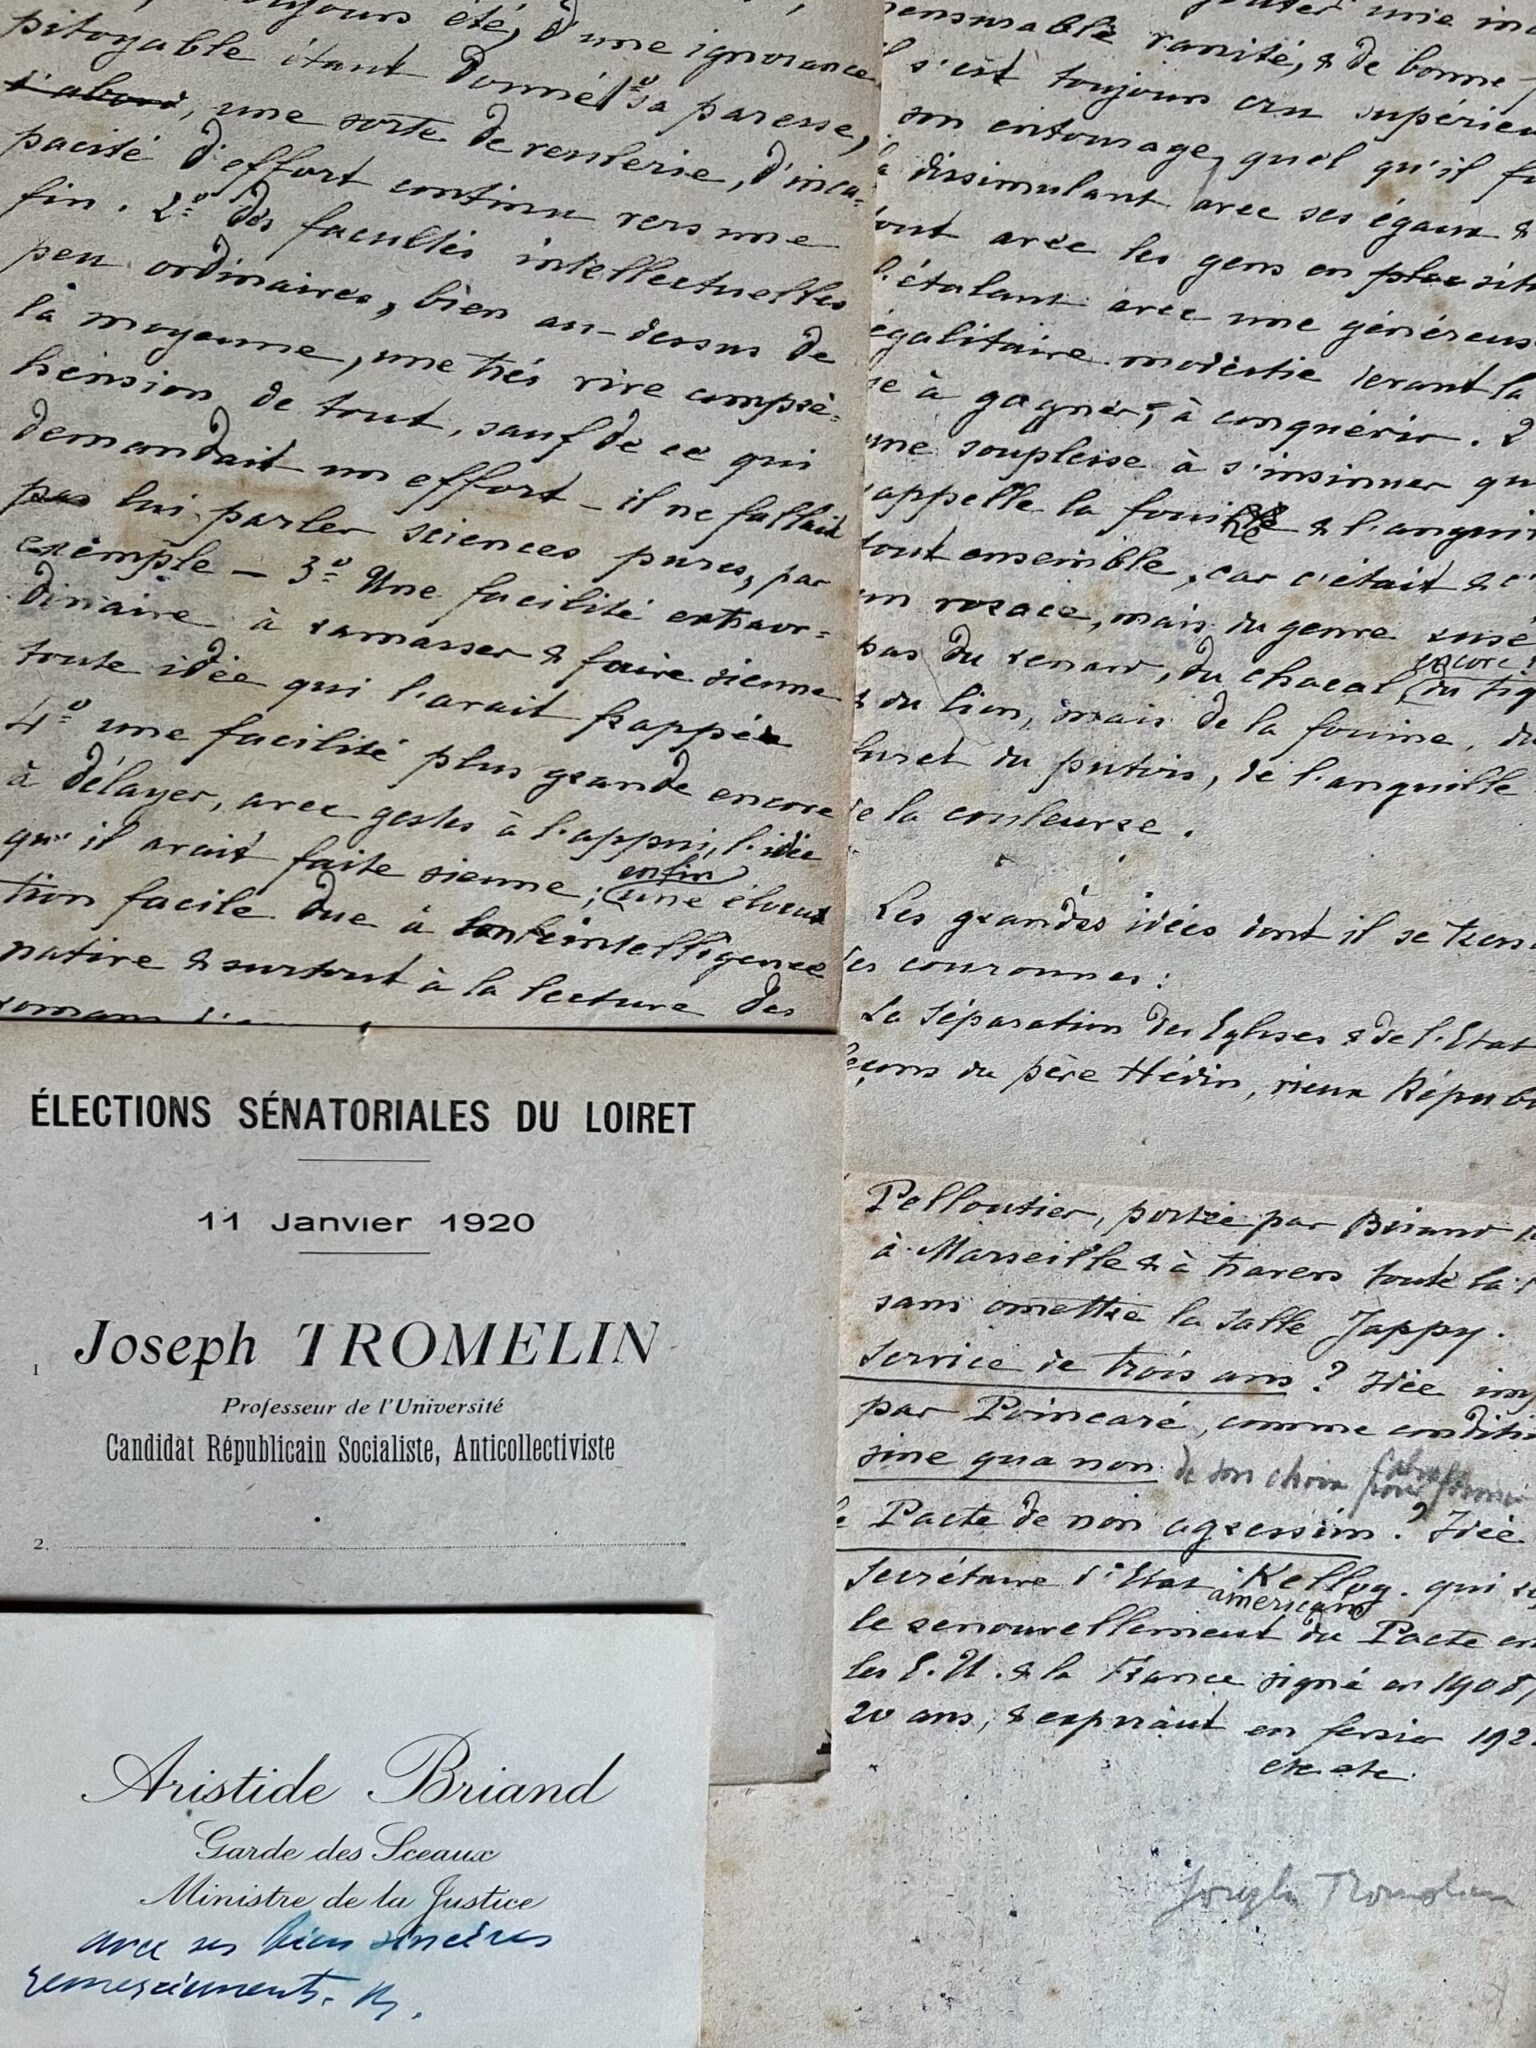 toujours été, d'une ignorance
pitoyable étant donné 1º sa paresse,
d'abord, une sorte de renterie, d'inca-
pacité d'effort continu vers une
fin. 2º des facultés intellectuelles
peu ordinaires, bien au-dessus de
la moyenne, une très vive compré-
hension de tout, sauf de ce qui
demandait un effort – il ne fallait
pas lui parler sciences pures, par
exemple – 3º Une facilité extraor-
dinaire à ramasser & faire sienne
toute idée qui l'avait frappé
4º une facilité plus grande encore
à délayer, avec gestes à l'appui, l'idée
qu'il avait faite sienne; enfin une élocu
tion facile due à l'intelligence
native & surtout à la lecture des
romans
ÉLECTIONS SÉNATORIALES DU LOIRET
11 Janvier 1920
1 Joseph TROMELIN
Professeur de l'Université
Candidat Républicain Socialiste, Anticollectiviste
2.
Aristide Briand
Garde des Sceaux
Ministre de la Justice
avec ses bien sincères
remerciements. Br.
une
vanité, & de bonne
il s'est toujours cru supérieu
son entourage, quel qu'il fu
la dissimulant avec ses égaux &
tout avec les gens en plac situ
l'étalant avec une généreuse
égalitaire modestie devant la
se à gagner, à conquérir. 2
une souplesse à s'insinuer qu
rappelle la fouine & l'angui
tout ensemble, car c'était &
un rosace, mais du genre
pas du renard, du chacal, encore du tig
& du lion, mais de la fouine, du
furet du putois, de l'anguille
de la couleuvre.
Les grandes idées dont il se
des couronnes:
La Séparation des Eglises & de l'Etat
leçons du père Hédin, vieux Républ
Pelloutier, portée par Briand
à Marseille & à travers toute la
sans omettre la Salle Jappy.
Service de trois ans ? Idée im
par Poincaré, comme conditi
sine qua non de son choix pour former
le Pacte de non agression ? Idée
Secrétaire d'Etat américain Kellog. qui
le renouvellement du Pacte en
les E.U. & la France signé en 1908
20 ans, & expirant en fevrier 192
etc etc.
Joseph Tromelin